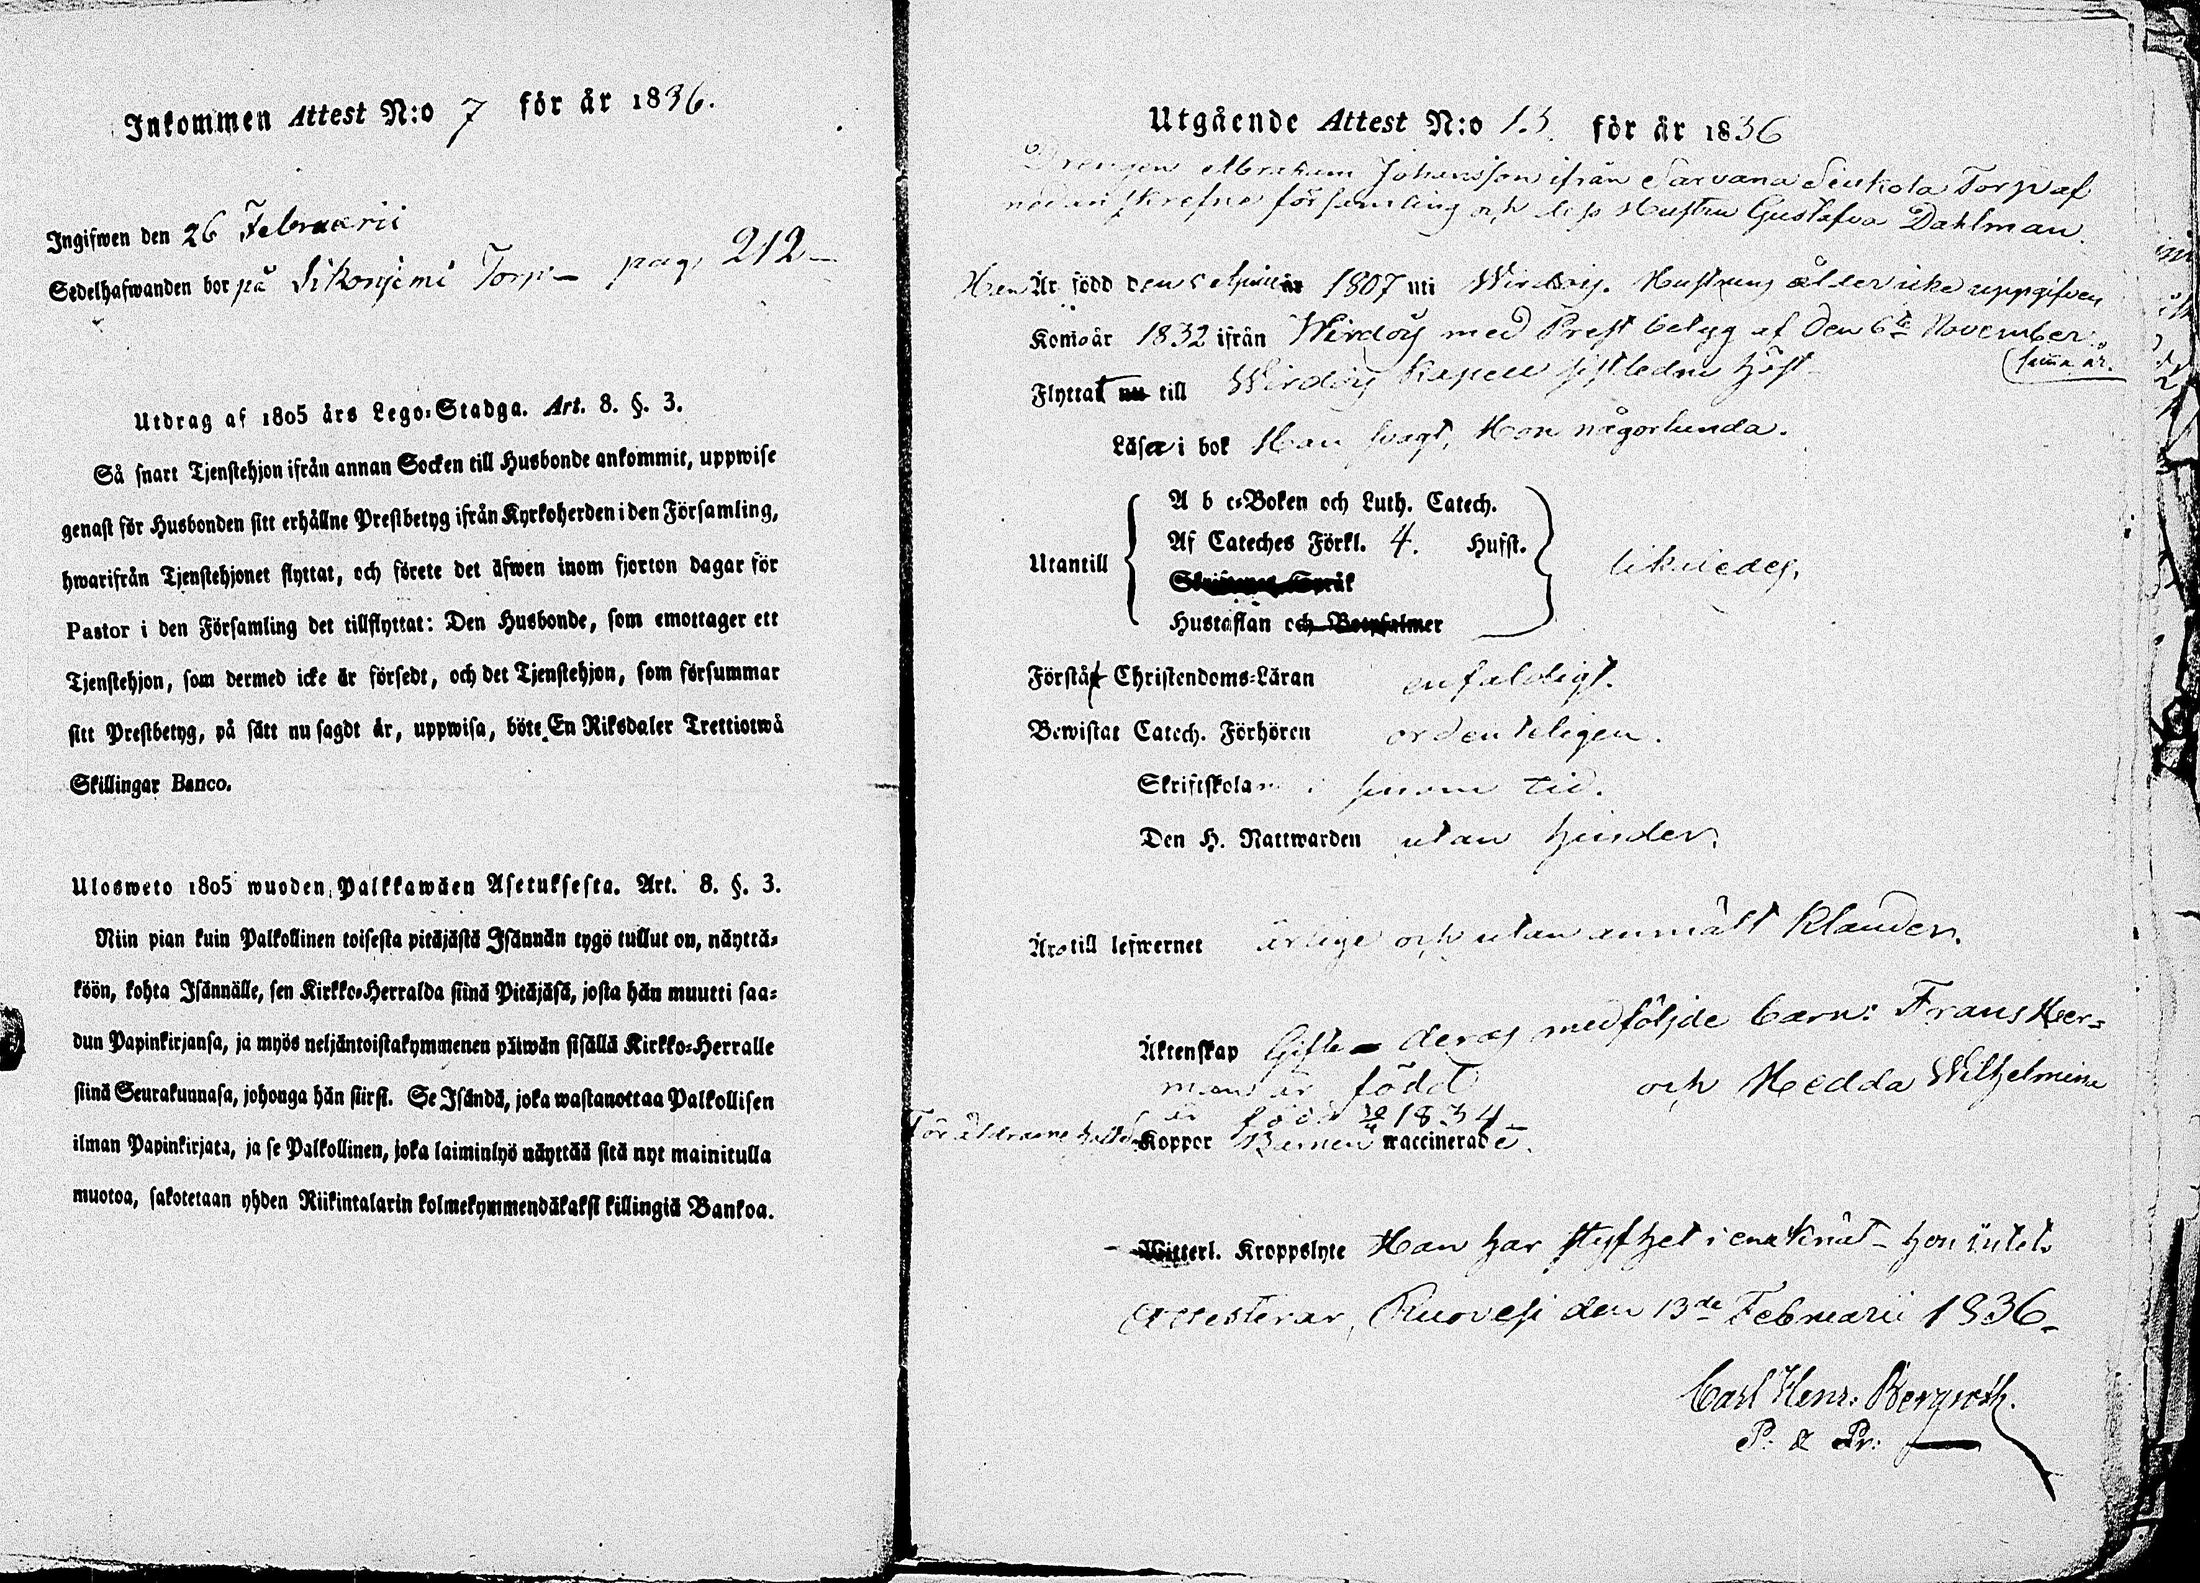 Inkommen Attest N:o 7 för år 1836.
Ingifwen den 26 Februarii
Sedelhafwanden bor på Torp pag. 212
Utdrag af 1805 års Lego-Stadga. Art. 8. §. 3.
Så snart Tjenstehjon ifrån annan Socken till Husbonde ankommit, uppwise
genast för Husbonden sitt erhållne Prestbetyg ifrån Kyrkoherden i den Församling,
hwarifrån Tjenstehjonet flyttat, och förete det äfwen inom fjorton dagar för
Pastor i den Församling det tillflyttat: Den Husbonde, som emottager ett
Tjenstehjon, som dermed icke är försedt, och det Tjenstehjon, som försummar
sitt Prestbetyg, på sätt nu sagdt är, uppwisa, böte En Riksdaler Trettiotwå
Skillingar Banco.
Ulosweto 1805 wuoden Palkkawäen Asetuksesta. Art. 8. §. 3.
Niin pian kuin Palkollinen toisesta pitäjästä Isännän tygö tullut on, näyttä-
köön, kohta Isännälle, sen Kirkko-Herralda siinä Pitäjäsä, josta hän muutti saa-
dun Papinkirjansa, ja myös neljäntoistakymmenen päiwän sisällä Kirkko-Herralle
siinä Seurakunnasa, johonga hän siirsi. Se Isändä, joka wastanottaa Palkollisen
ilman Papinkirjata, ja se Palkollinen, joka laiminlyö näyttää sitä nyt mainitulla
muotoa, sakotetaan yhden Riikintalarin kolmekymmendäkaksi killingiä Bankoa.
Utgående Attest N:o 13. för år 1836
Drengen Abraham Johansson ifrån Sarvana Seukola Torp af
nedanskrefne församling och dess Hustru Gustafva Dahlman.
Han Är född den 1807 uti Wirdois. Hustruns ålder icke uppgifven
Kom år 1832 ifrån Wirdois med Prest betyg af den 6te November
samma år.
Flyttat nu till Wirdois Kapell sistledne höst
Läsa i bok Han svagt, Hon någorlunda.
A b c-Boken och Luth. Catech.
Utantill Af Cateches Förkl. 4. Hufst. likaledes.
Skriftenes Språk
Hustaflan och Botpsalmer
Förstå Christendoms-Läran enfaldigt.
Bewistat Catech. Förhören ordenteligen.
Skriftskolan i sinom tid.
Den H. Nattwarden utan hinder.
Äro till lefwernet ärlige och utan anmält klander.
Äktenskap Gifte - deras medföljde barn: Frans Her-
man är född och Hedda Wilhelmina
är född 1834
Föräldrarne haft Koppor Barnen waccinerade.
Witterl. Kroppslyte Han har styfhet i ena knät - hon intet.
Attesterar, Ruovesi den 13de Februarii 1836.
Carl Henr. Bergroth.
P. & Pr: